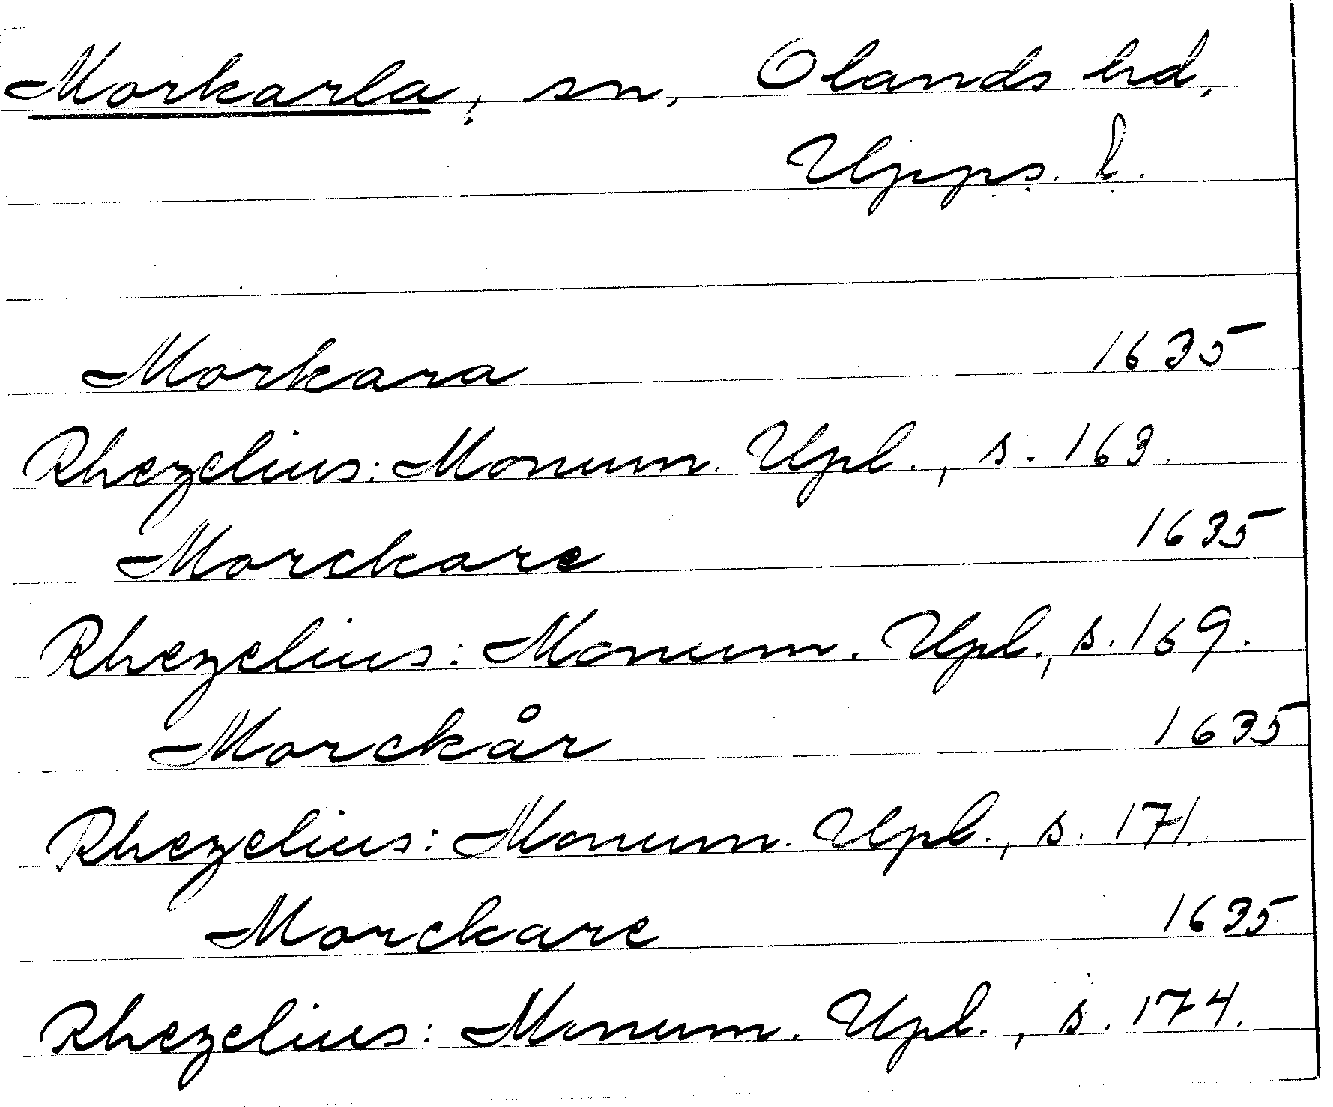 Morkarla, sn, Olands hd,
Upps. l.
Morkara 1635
Rhezelius: Monum. Upl., s. 163.
Morckare 1635
Rhezelius: Monum. Upl., s. 169.
Morckår 1635
Rhezelius: Monum. Upl., s. 171.
Morckare 1635
Rhezelius: Monum. Upl., s. 174.